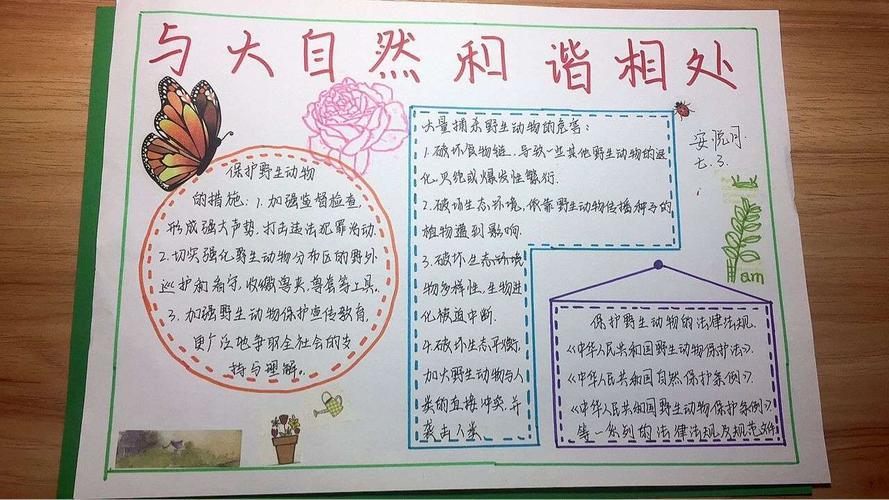 与大自然和谐相处
安悦月
七.3.
保护野生动物
的措施：1.加强监督检查，
形成强大声势，打击违法犯罪活动.
2.切实强化野生动物分布区的野外
巡护和看守，收缴兽夹，兽套等工具。
3.加强野生动物保护宣传教育，
更广泛地争取全社会的支
持与理解。
大量捕杀野生动物的危害：
1.破坏食物链，导致一些其他野生动物的退
化、灭绝或爆发性繁衍.
2.破坏生态环境，依靠野生动物传播种子的
植物遭到影响.
3.破坏生态环境
物多样性，生物进
化被迫中断.
4.破坏生态平衡，
加大野生动物与人
类的直接冲突，并
袭击人类
am
保护野生动物的法律法规.
《中华人民共和国野生动物保护法》.
《中华人民共和国自然保护条例》.
《中华人民共和国野生动物保护条例》.
等一系列的法律法规及规范文件